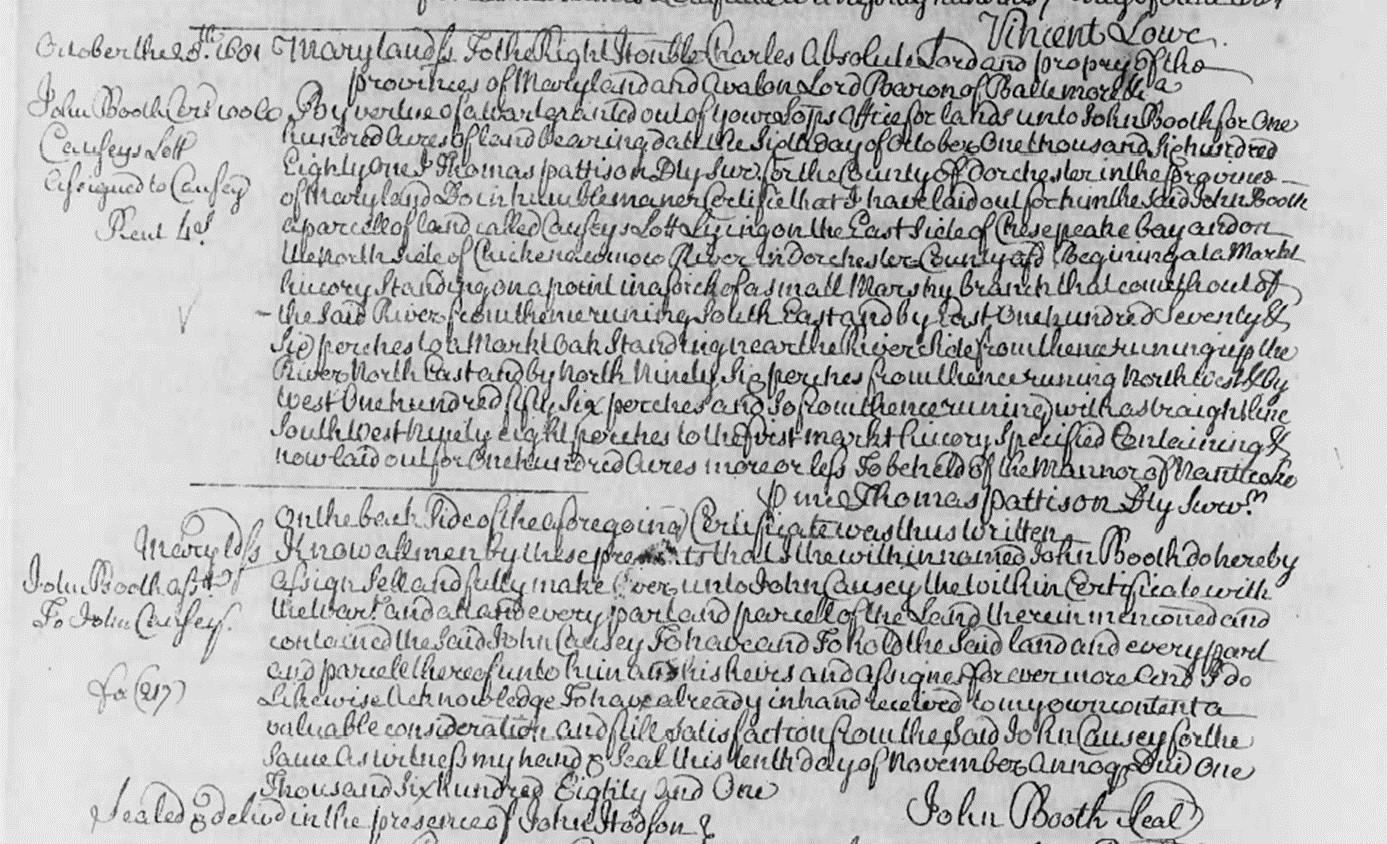 Vincent Lowe.
October the 28th. 1681 Maryland ss To the Right Honble Charles Absolute Lord and propry of the
provinces of Maryland and Avalon Lord Baron of Baltemore &a
John Booth Cert 100 Acs By vertue of a warrt granted out of your Lopps office for lands unto John Booth for One
hundred Acres of land bearing date the Sixth day of October One thousand Six hundred
Causeys Lott
Eighty One I Thomas Pattison Dty Surv. for the County of Dorchester in the province
assigned to Causey
of Maryland Do in humble maner Certifie that I have laid out for him the said John Booth
Rent 4s
a parcell of land called Causeys Lott Lying on the East Side of Chesepeake bay and on
the North side of Chickenacomoco River in Dorchester County afd Begining at a Markt
hicory Standing on a point in a forck of a small Marshy branch that cometh out of
the said River from thence runing South East and by East One hundred Seventy &
Six perches to a Markt Oak Standing near the River side from thence runing up the
River North East and by North Ninety Six perches from thence runing North West & by
West One hundred fifty Six perches and So from thence runing with a straight line
South West Ninety eight perches to the first markt hicory Specified Containing &
now laid out for One hundred Acres more or less To be held of the Mannor of Nanticoke
P me Thomas Pattison Dty Survr.
On the back Side of the aforegoing Certificate was thus written
Maryld ss Know all men by these presents that I the within named John Booth do hereby
John Booth asst of
assign Sell and fully make Over unto John Causey the within Certificate with
To John Causey.
the warrt. and all and every part and parcell of the Land therein mencioned and
contained the said John Causey To have and To hold the said land and every part
and parcell thereof unto him and his heirs and assignes for ever more And I do
fo (217)
Likewise Acknowledge To have already in hand received to my own content a
valuable consideration and full satisfaction from the said John Causey for the
same As witness my hand & Seal this tenth day of November Annoq Dni One
Thousand Six Hundred Eighty and One
John Booth Seal
Sealed & delivd in the presence of John Hodson